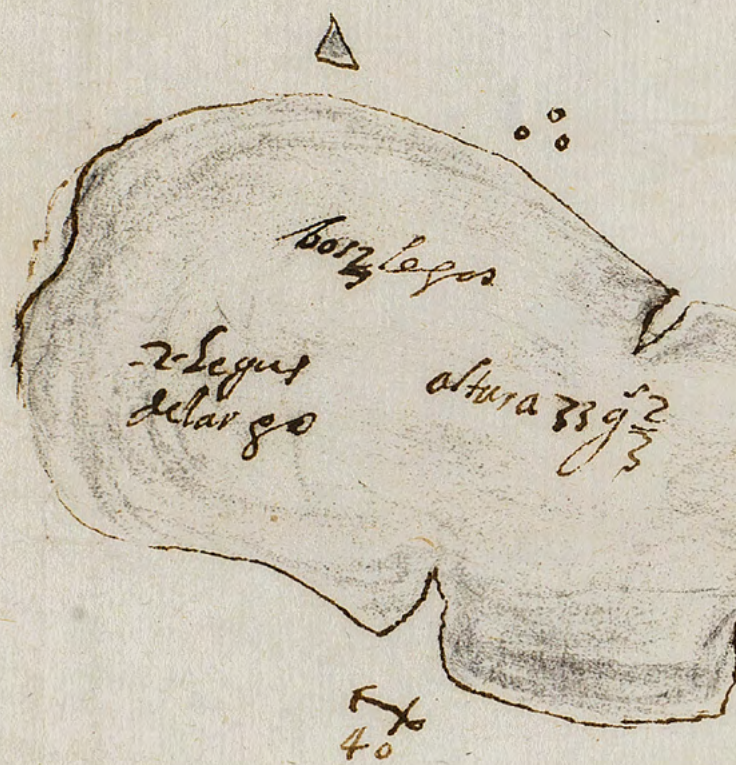 box 2/3 legos
-2-Legus
delargo
altura 33 gˢ 2/3
40